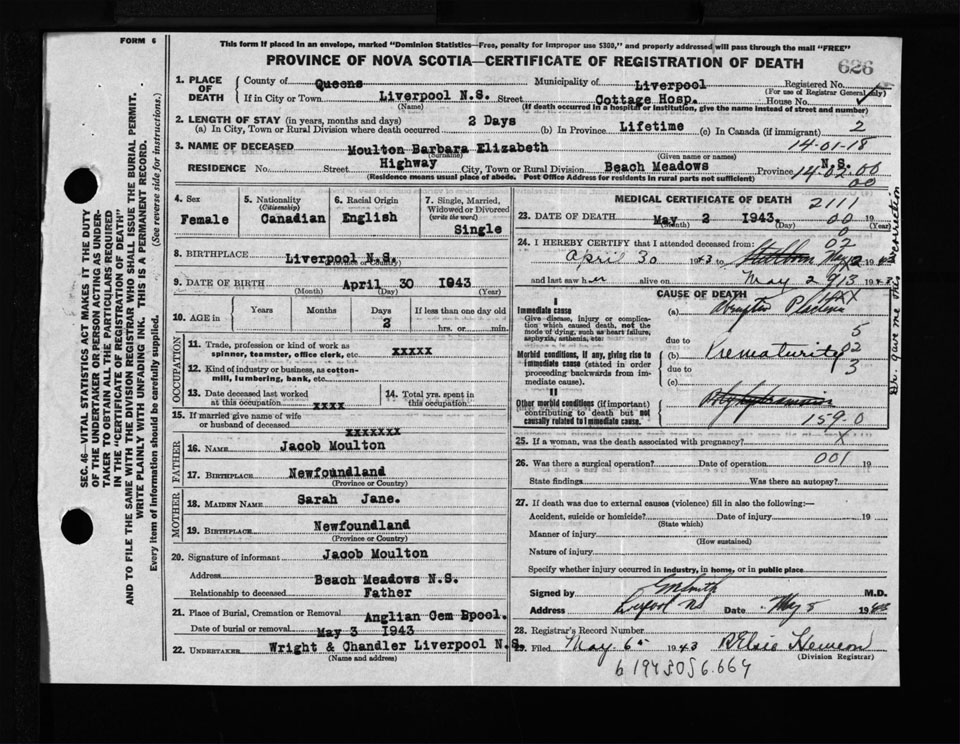 FORM 6
This form if placed in an envelope, marked "Dominion Statistics—Free, penalty for improper use $300," and properly addressed will pass through the mail "FREE"
PROVINCE OF NOVA SCOTIA—CERTIFICATE OF REGISTRATION OF DEATH
626
SEC. 46—VITAL STATISTICS ACT MAKES IT THE DUTY
OF THE UNDERTAKER OR PERSON ACTING AS UNDER-
TAKER TO OBTAIN ALL THE PARTICULARS REQUIRED
IN THE "CERTIFICATE OF REGISTRATION OF DEATH"
AND TO FILE THE SAME WITH THE DIVISION REGISTRAR WHO SHALL ISSUE THE BURIAL PERMIT.
WRITE PLAINLY WITH UNFADING INK. THIS IS A PERMANENT RECORD.
Every item of information should be carefully supplied. (See reverse side for instructions.)
1. PLACE OF DEATH
County of Queens Municipality of Liverpool Registered No.
(For use of Registrar General only)
If in City or Town Liverpool N.S. Street Cottage Hosp. House No.
(Name) (If death occurred in a hospital or institution, give the name instead of street and number)
2. LENGTH OF STAY (in years, months and days)
(a) In City, Town or Rural Division where death occurred 2 Days (b) In Province Lifetime (c) In Canada (if immigrant) 2
14-01-18
3. NAME OF DECEASED Moulton Barbara Elizabeth
(Surname) (Given name or names)
RESIDENCE No. Street Highway City, Town or Rural Division Beach Meadows Province N.S.
14-02-00
(Residence means usual place of abode. Post Office Address for residents in rural parts not sufficient)
00
4. Sex
Female
5. Nationality
(Citizenship)
Canadian
6. Racial Origin
English
7. Single, Married, Widowed or Divorced
(write the word)
Single
8. BIRTHPLACE Liverpool N.S.
(Province or Country)
9. DATE OF BIRTH April 30 1943
(Month) (Day) (Year)
10. AGE Years Months Days 2 If less than one day old
hrs. or min.
OCCUPATION
11. Trade, profession or kind of work as
spinner, teamster, office clerk, etc. xxxxx
12. Kind of industry or business, as cotton-
mill, lumbering, bank, etc.
13. Date deceased last worked
at this occupation xxxx
14. Total yrs. spent in
this occupation
15. If married give name of wife
or husband of deceased xxxxxxx
FATHER
16. NAME Jacob Moulton
17. BIRTHPLACE Newfoundland
(Province or Country)
MOTHER
18. MAIDEN NAME Sarah Jane.
19. BIRTHPLACE Newfoundland
(Province or Country)
20. Signature of informant Jacob Moulton
Address Beach Meadows N.S.
Relationship to deceased Father
21. Place of Burial, Cremation or Removal Anglian Cem Bpool.
Date of burial or removal May 3 1943
22. UNDERTAKER Wright & Chandler Liverpool N.S.
(Name and address)
MEDICAL CERTIFICATE OF DEATH
2111
23. DATE OF DEATH May 2 1943. 00 19
(Month) (Day) (Year)
0
02
24. I HEREBY CERTIFY that I attended deceased from:
April 30 1943 to May 2 19
and last saw her alive on May 2 19
CAUSE OF DEATH
I
Immediate cause
Give disease, injury or complica-
tion which caused death, not the
mode of dying, such as heart failure,
asphyxia, asthenia, etc.
(a)
due to
5
Morbid conditions, if any, giving rise to
immediate cause (stated in order
proceeding backwards from im-
mediate cause).
(b) Prematurity
due to
3
(c)
II
Other morbid conditions (if important)
contributing to death but not
causally related to immediate cause.
159-0
25. If a woman, was the death associated with pregnancy? x
26. Was there a surgical operation? Date of operation 001 19
State findings Was there an autopsy?
27. If death was due to external causes (violence) fill in also the following:—
Accident, suicide or homicide? Date of injury 19
(State which)
Manner of injury
(How sustained)
Nature of injury
Specify whether injury occurred in industry, in home, or in public place
Signed by Smith M.D.
Address Date May 5 1943
28. Registrar's Record Number
29. Filed May 6 1943
(Division Registrar)
Dr. gave me this correction